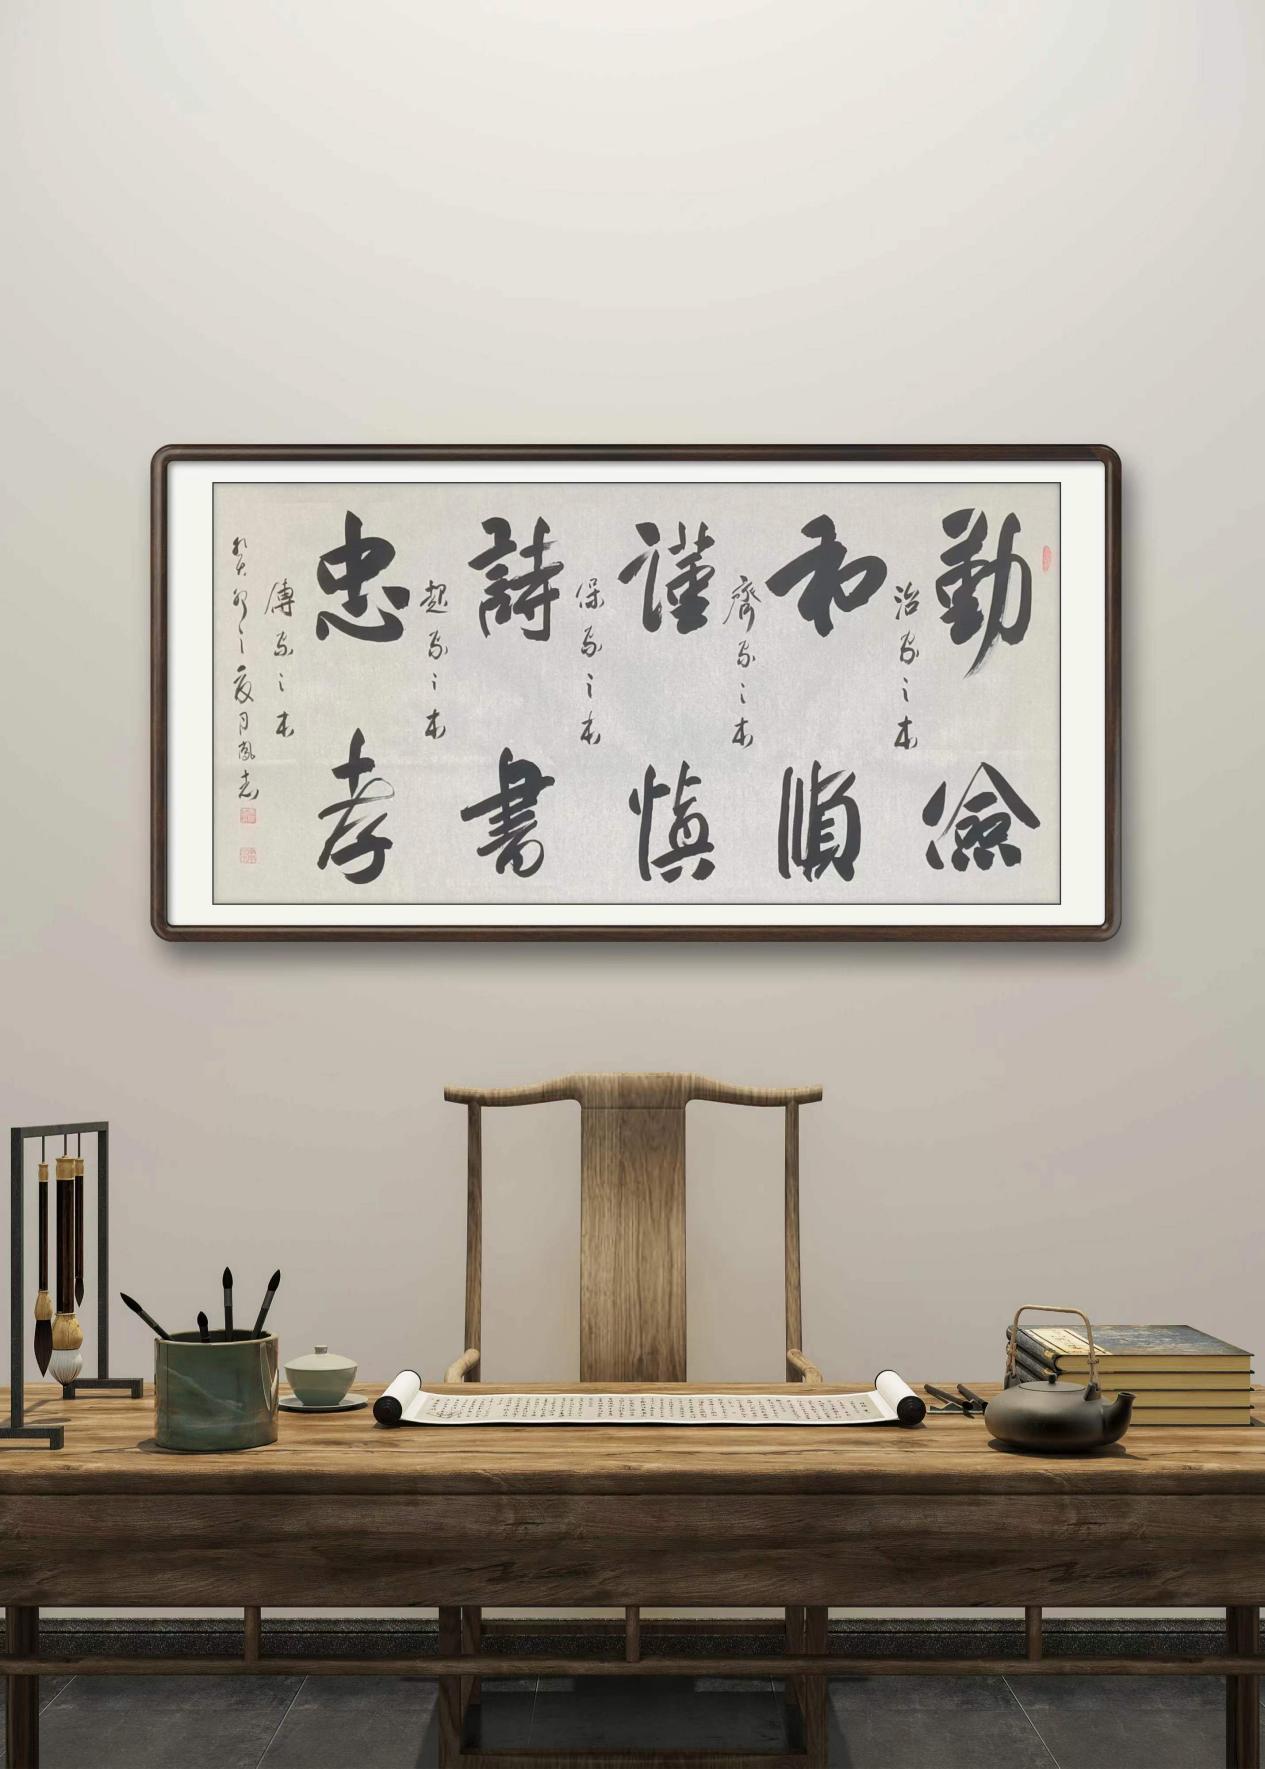 勤儉
治家之本
和順
齊家之本
謹慎
保家之本
詩書
起家之本
忠孝
傳家之本
癸卯之夏月鳳志